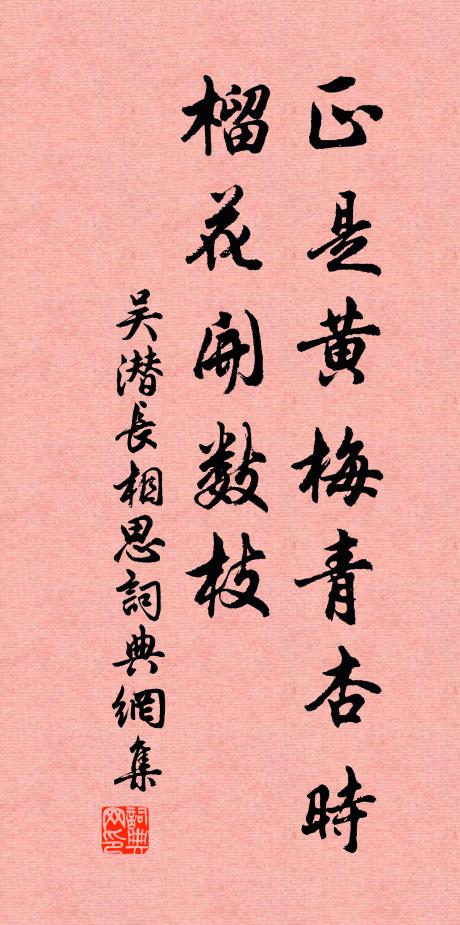 正是黄梅青杏時
榴花開數枝
吴潜長相思詞典網集
詞典网印